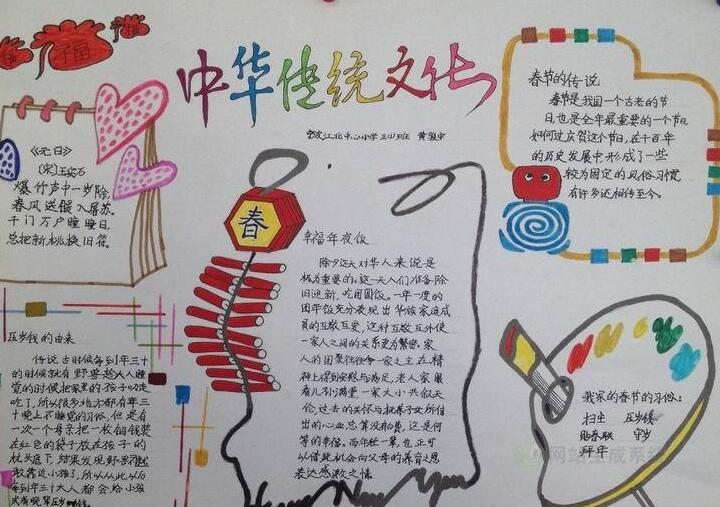 中华传统文化
幸福
《元日》
〔宋〕王安石
爆竹声中一岁除,
春风送暖入屠苏。
千门万户曈曈日,
总把新桃换旧符。
春
幸福年夜饭
除夕这天对华人来说是
极为重要的。这一天人们准备除
旧迎新,吃团圆饭。一年一度的
团年饭充分表现出华族家庭成
员的互敬互爱,这种互敬互外使
一家人之间的关系更为紧密。家
人的团聚往往令一家之主在精
神上得到安慰与满足,老人家眼
看儿孙满堂一家大小共叙天
伦,过去的关怀与抚养子女所付
出的心血总算没白费,这是何
等的幸福。而年轻一辈,也正可
以借此机会向父母的养育之恩
表达感激之情
春节的传说
春节是我国一个古老的节
日,也是全年最重要的一个节日,
如何过庆贺这个节日,在千百年
的历史发展中,形成了一些
较为固定的风俗习惯,
有许多还相传至今。
压岁钱的由来
传说古时候每到年三十
的时候就有野兽趁大人睡
觉的时候把家里的孩子
吃了,所以很多地方都有年三
十晚上不睡觉的习俗,但是有
一次一个母亲把一枚铜钱装
在红色的袋子放在孩子的
枕头底下,结果发现野兽不
敢靠近小孩了,所以从此以后
每到年三十大人都会给小孩
我家的春节的习俗:
扫尘 压岁钱
贴春联 守岁
拜年
网站生成系统